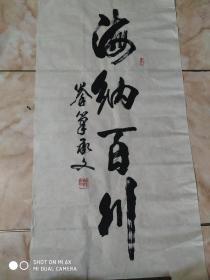 海纳百川
岑笔承文
SHOT ON MI 6X
MI DUAL CAMERA